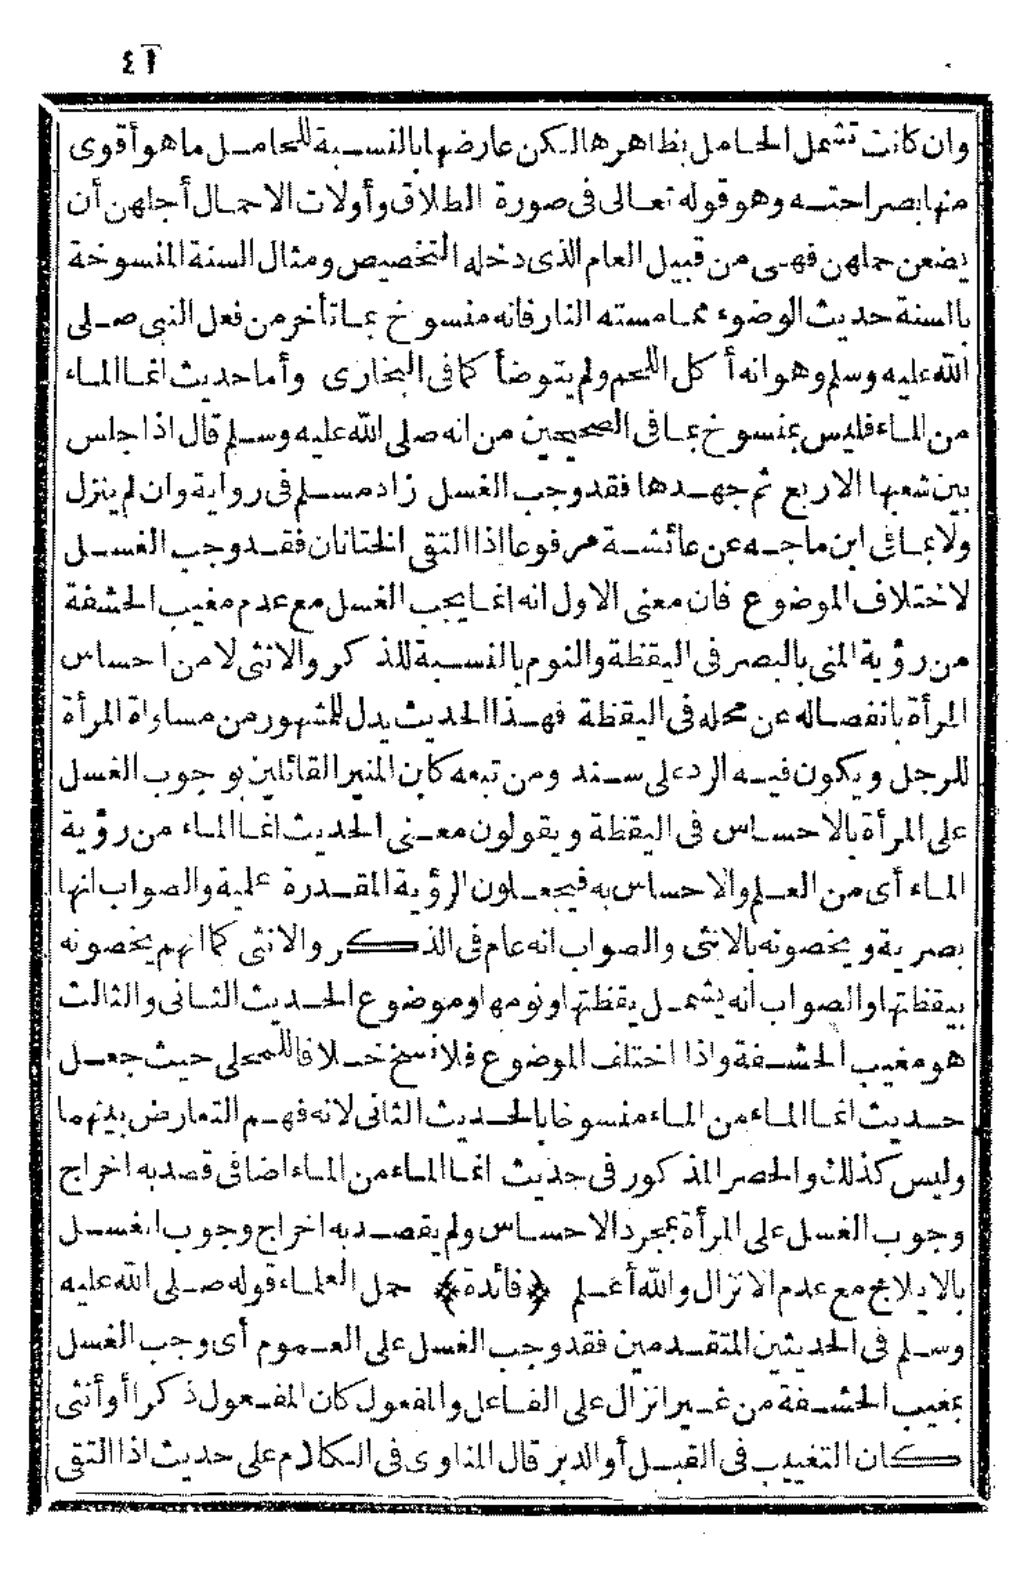 ٤٦
وان كانت تشمل الحامل بظاهرها لكن عارضها بالنسبة للحامل ما هو أقوى
منها بصراحته وهو قوله تعالى فى صورة الطلاق وأولات الاحمال أجلهن أن
يضعن حملهن فهى من قبيل العام الذى دخله التخصيص ومثال السنة المنسوخة
بالسنة حديث الوضوء مما مسته النار فانه منسوخ بما تأخر من فعل النبى صلى
الله عليه وسلم وهو انه أكل اللحم ولم يتوضأ كما فى البخارى وأما حديث انما الماء
من الماء فليس بمنسوخ بما فى الصحيحين من انه صلى الله عليه وسلم قال اذا جلس
بين شعبها الاربع ثم جهدها فقد وجب الغسل زاد مسلم فى رواية وان لم ينزل
ولا بما فى ابن ماجه عن عائشة مرفوعا اذا التقى الختانان فقد وجب الغسل
لاختلاف الموضوع فان معنى الاول انه انما يجب الغسل مع عدم مغيب الحشفة
من رؤية المنى بالبصر فى اليقظة والنوم بالنسبة للذكر والانثى لا من احساس
المرأة بانفصاله عن محله فى اليقظة فهذا الحديث يدل للمشهور من مساواة المرأة
للرجل ويكون فيه الرد على سند ومن تبعه كابن المنير القائلين بوجوب الغسل
على المرأة بالاحساس فى اليقظة ويقولون معنى الحديث انما الماء من رؤية
الماء أى من العلم والاحساس به فيجعلون الرؤية المقدرة علمية والصواب انها
بصرية ويخصونه بالانثى والصواب انه عام فى الذكر والانثى كما انهم يخصونه
بيقظتها والصواب انه يشمل يقظتها ونومها وموضوع الحديث الثانى والثالث
هو مغيب الحشفة واذا اختلف الموضوع فلا نسخ خلافا للمحلى حيث جعل
حديث انما الماء من الماء منسوخا بالحديث الثانى لانه فهم التعارض بينهما
وليس كذلك والحصر المذكور فى حديث انما الماء من الماء اضافى قصد به اخراج
وجوب الغسل على المرأة بمجرد الاحساس ولم يقصد به اخراج وجوب الغسل
بالايلاج مع عدم الانزال والله أعلم ﴿فائدة﴾ حمل العلماء قوله صلى الله عليه
وسلم فى الحديثين المتقدمين فقد وجب الغسل على العموم أى وجب الغسل
بمغيب الحشفة من غير انزال على الفاعل والمفعول كان المفعول ذكرا أو أنثى
كان التغييب فى القبل أو الدبر قال المناوى فى الكلام على حديث اذا التقى